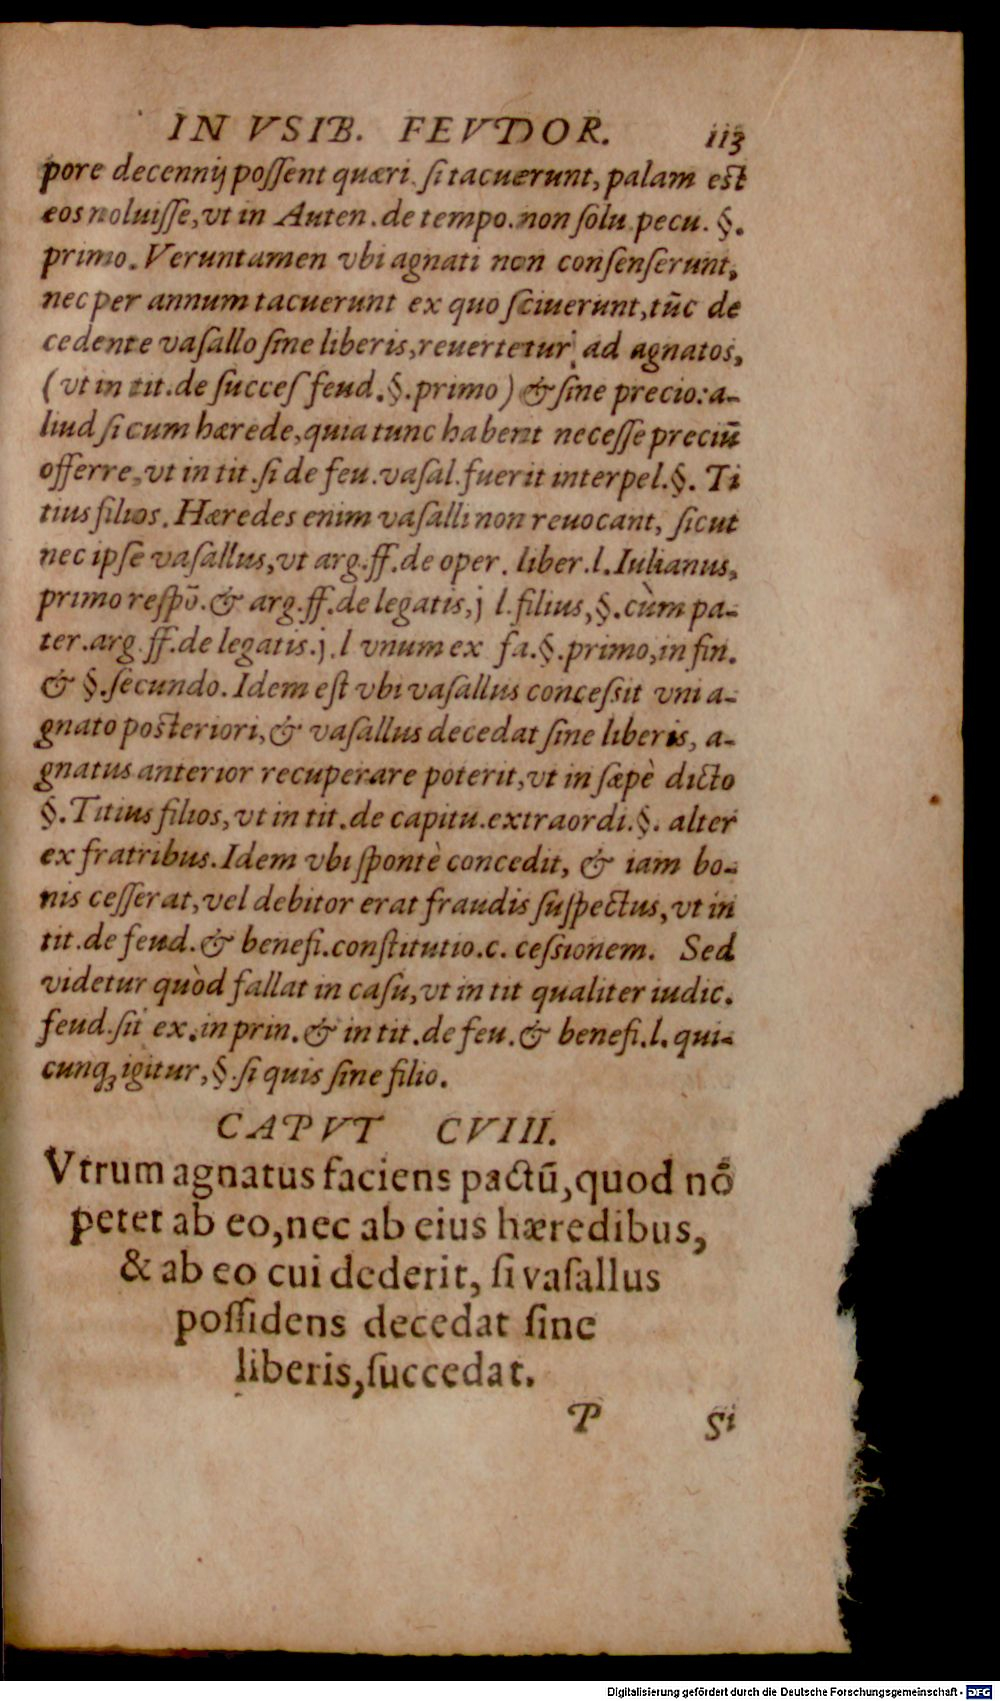 IN VSIB. FEVDOR. 113
pore decennij possent quæri. si tacuerunt, palam est
eos noluisse, vt in Auten. de tempo. non solu. pecu. §.
primo. Veruntamen vbi agnati non consenserunt,
nec per annum tacuerunt ex quo sciuerunt, tūc de
cedente vasallo sine liberis, reuertetur ad agnatos,
(vt in tit. de succes feud. §. primo) & sine precio: a-
liud si cum hærede, quia tunc habent necesse preciū
offerre, vt in tit. si de feu. vasal. fuerit interpel. §. Ti
tius filios. Hæredes enim vasalli non reuocant, sicut
nec ipse vasallus, vt arg. ff. de oper. liber. l. Iulianus,
primo respō. & arg. ff. de legatis, j l. filius, §. cùm pa-
ter. arg. ff. de legatis. j. l vnum ex fa. §. primo, in fin.
& §. secundo. Idem est vbi vasallus concessit vni a-
gnato posteriori, & vasallus decedat sine liberis, a-
gnatus anterior recuperare poterit, vt in sæpè dicto
§. Titius filios, vt in tit. de capitu. extraordi. §. alter
ex fratribus. Idem vbi spontè concedit, & iam bo-
nis cesserat, vel debitor erat fraudis suspectus, vt in
tit. de feud. & benefi. constitutio. c. cessionem. Sed
videtur quòd fallat in casu, vt in tit qualiter iudic.
feud. sit ex. in prin. & in tit. de feu. & benefi. l. qui-
cunq; igitur, §. si quis sine filio.
CAPVT CVIII.
Vtrum agnatus faciens pactū, quod nō
petet ab eo, nec ab eius hæredibus,
& ab eo cui dederit, si vasallus
possidens decedat sine
liberis, succedat.
P Si
Digitalisierung gefördert durch die Deutsche Forschungsgemeinschaft - DFG